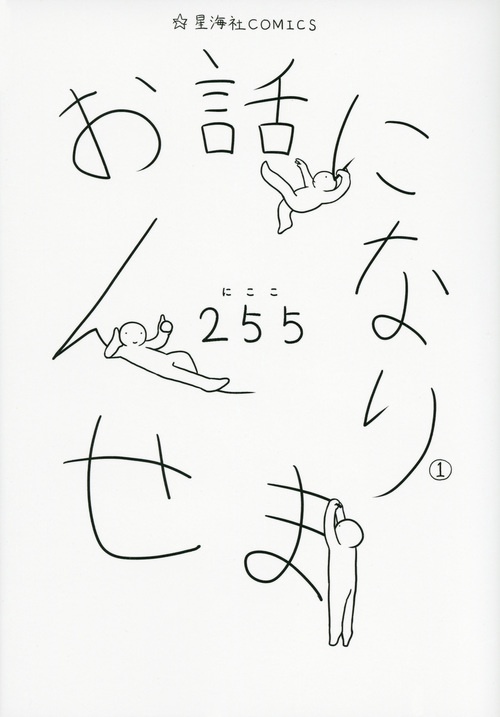 ☆星海社COMICS
お話になりません
①
にここ
255